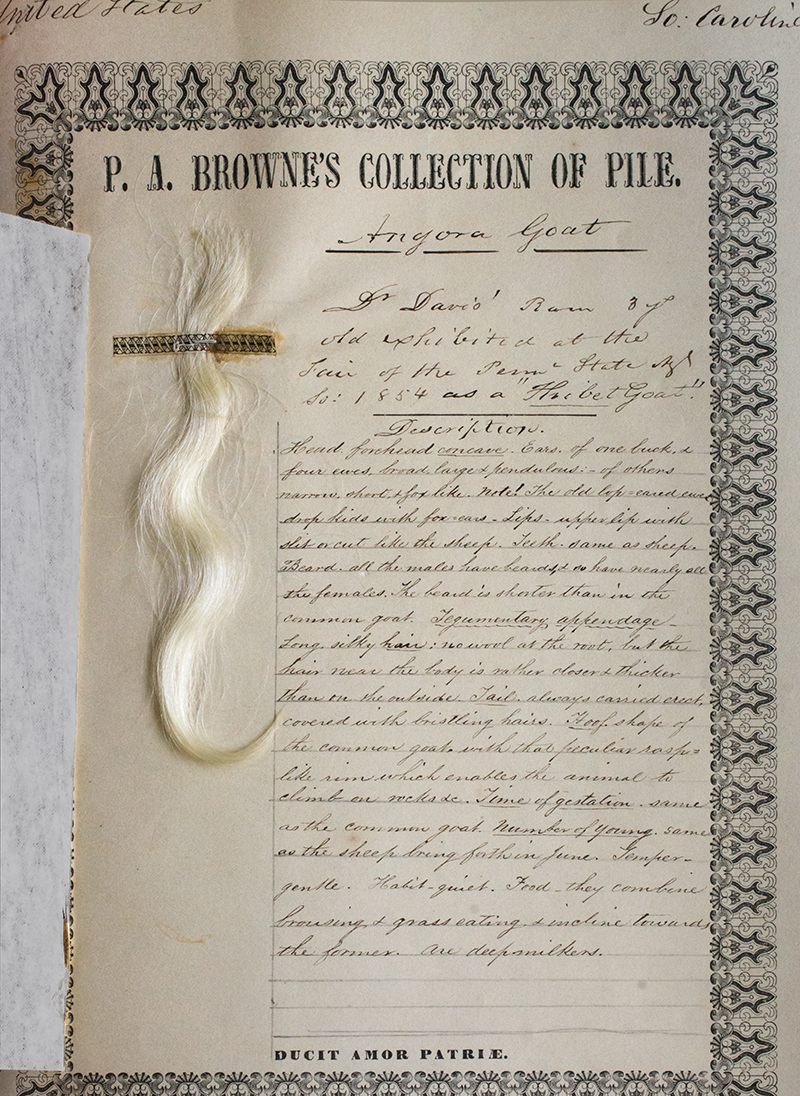 United States
So: Carolin
P. A. BROWNE'S COLLECTION OF PILE.
Angora Goat
Dr Davis' Ram 3 y
old exhibited at the
Fair of the Penna State Agl
So: 1854 as a "Thibet Goat".
Description.
Head, forehead concave. Ears. of one buck, &
four ewes, broad, large & pendulous: - of others
narrow, short, & fox like. Note! The old lop-eared ewes
drop kids with fox-ears - Lips - upper lip with
slit or cut like the sheep. Teeth. same as sheep.
Beard. all the males have beards, & so have nearly all
the females. The beard is shorter than in the
common goat. Tegumentary appendage -
Long silky hair: no wool at the root, but the
hair near the body is rather closer & thicker
than on the outside. Tail. always carried erect,
covered with bristling hairs. Hoof. shape of
the common goat, with that peculiar rasp=
like rim which enables the animal to
climb on rocks &c. Time of gestation. same
as the common goat. Number of young. same
as the sheep bring forth in June. Temper -
gentle. Habit - quiet. Food - they combine
brousing, & grass eating, & incline towards
the former. Are deep milkers.
DUCIT AMOR PATRIÆ.